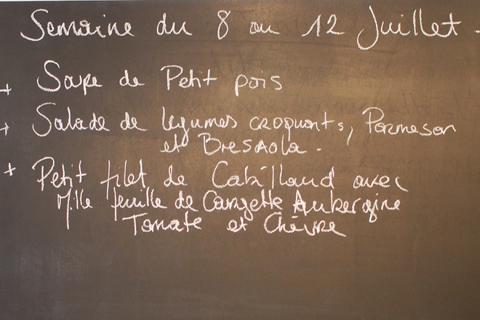 Semaine du 8 au 12 Juillet.
+ Soupe de Petit pois
+ Salade de légumes croquants, Parmesan
et Bresaola.
+ Petit filet de Cabillaud avec
Mille feuille de Courgette Aubergine
Tomate et Chèvre